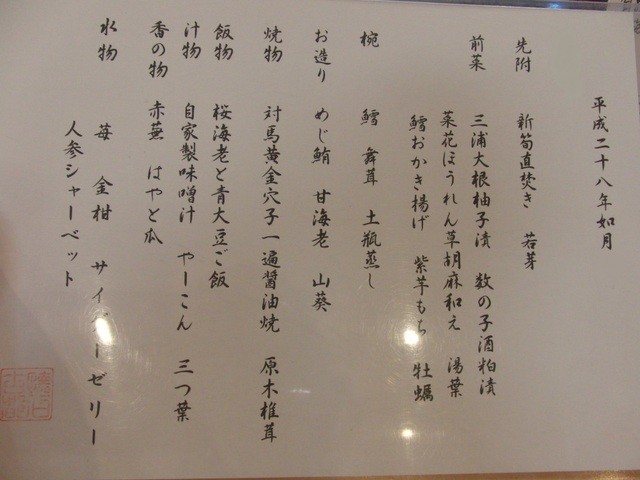 平成二十八年如月
先附　新筍直焚き　若芽
前菜　三浦大根柚子漬　数の子酒粕漬
菜花ほうれん草胡麻和え　湯葉
鱈おかき揚げ　紫芋もち　牡蠣
椀　鱈　舞茸　土瓶蒸し
お造り　めじ鮪　甘海老　山葵
焼物　対馬黄金穴子一遍醤油焼　原木椎茸
飯物　桜海老と青大豆ご飯
汁物　自家製味噌汁　やーこん　三つ葉
香の物　赤蕪　はやと瓜
水物　苺　金柑　サイダーゼリー
人参シャーベット